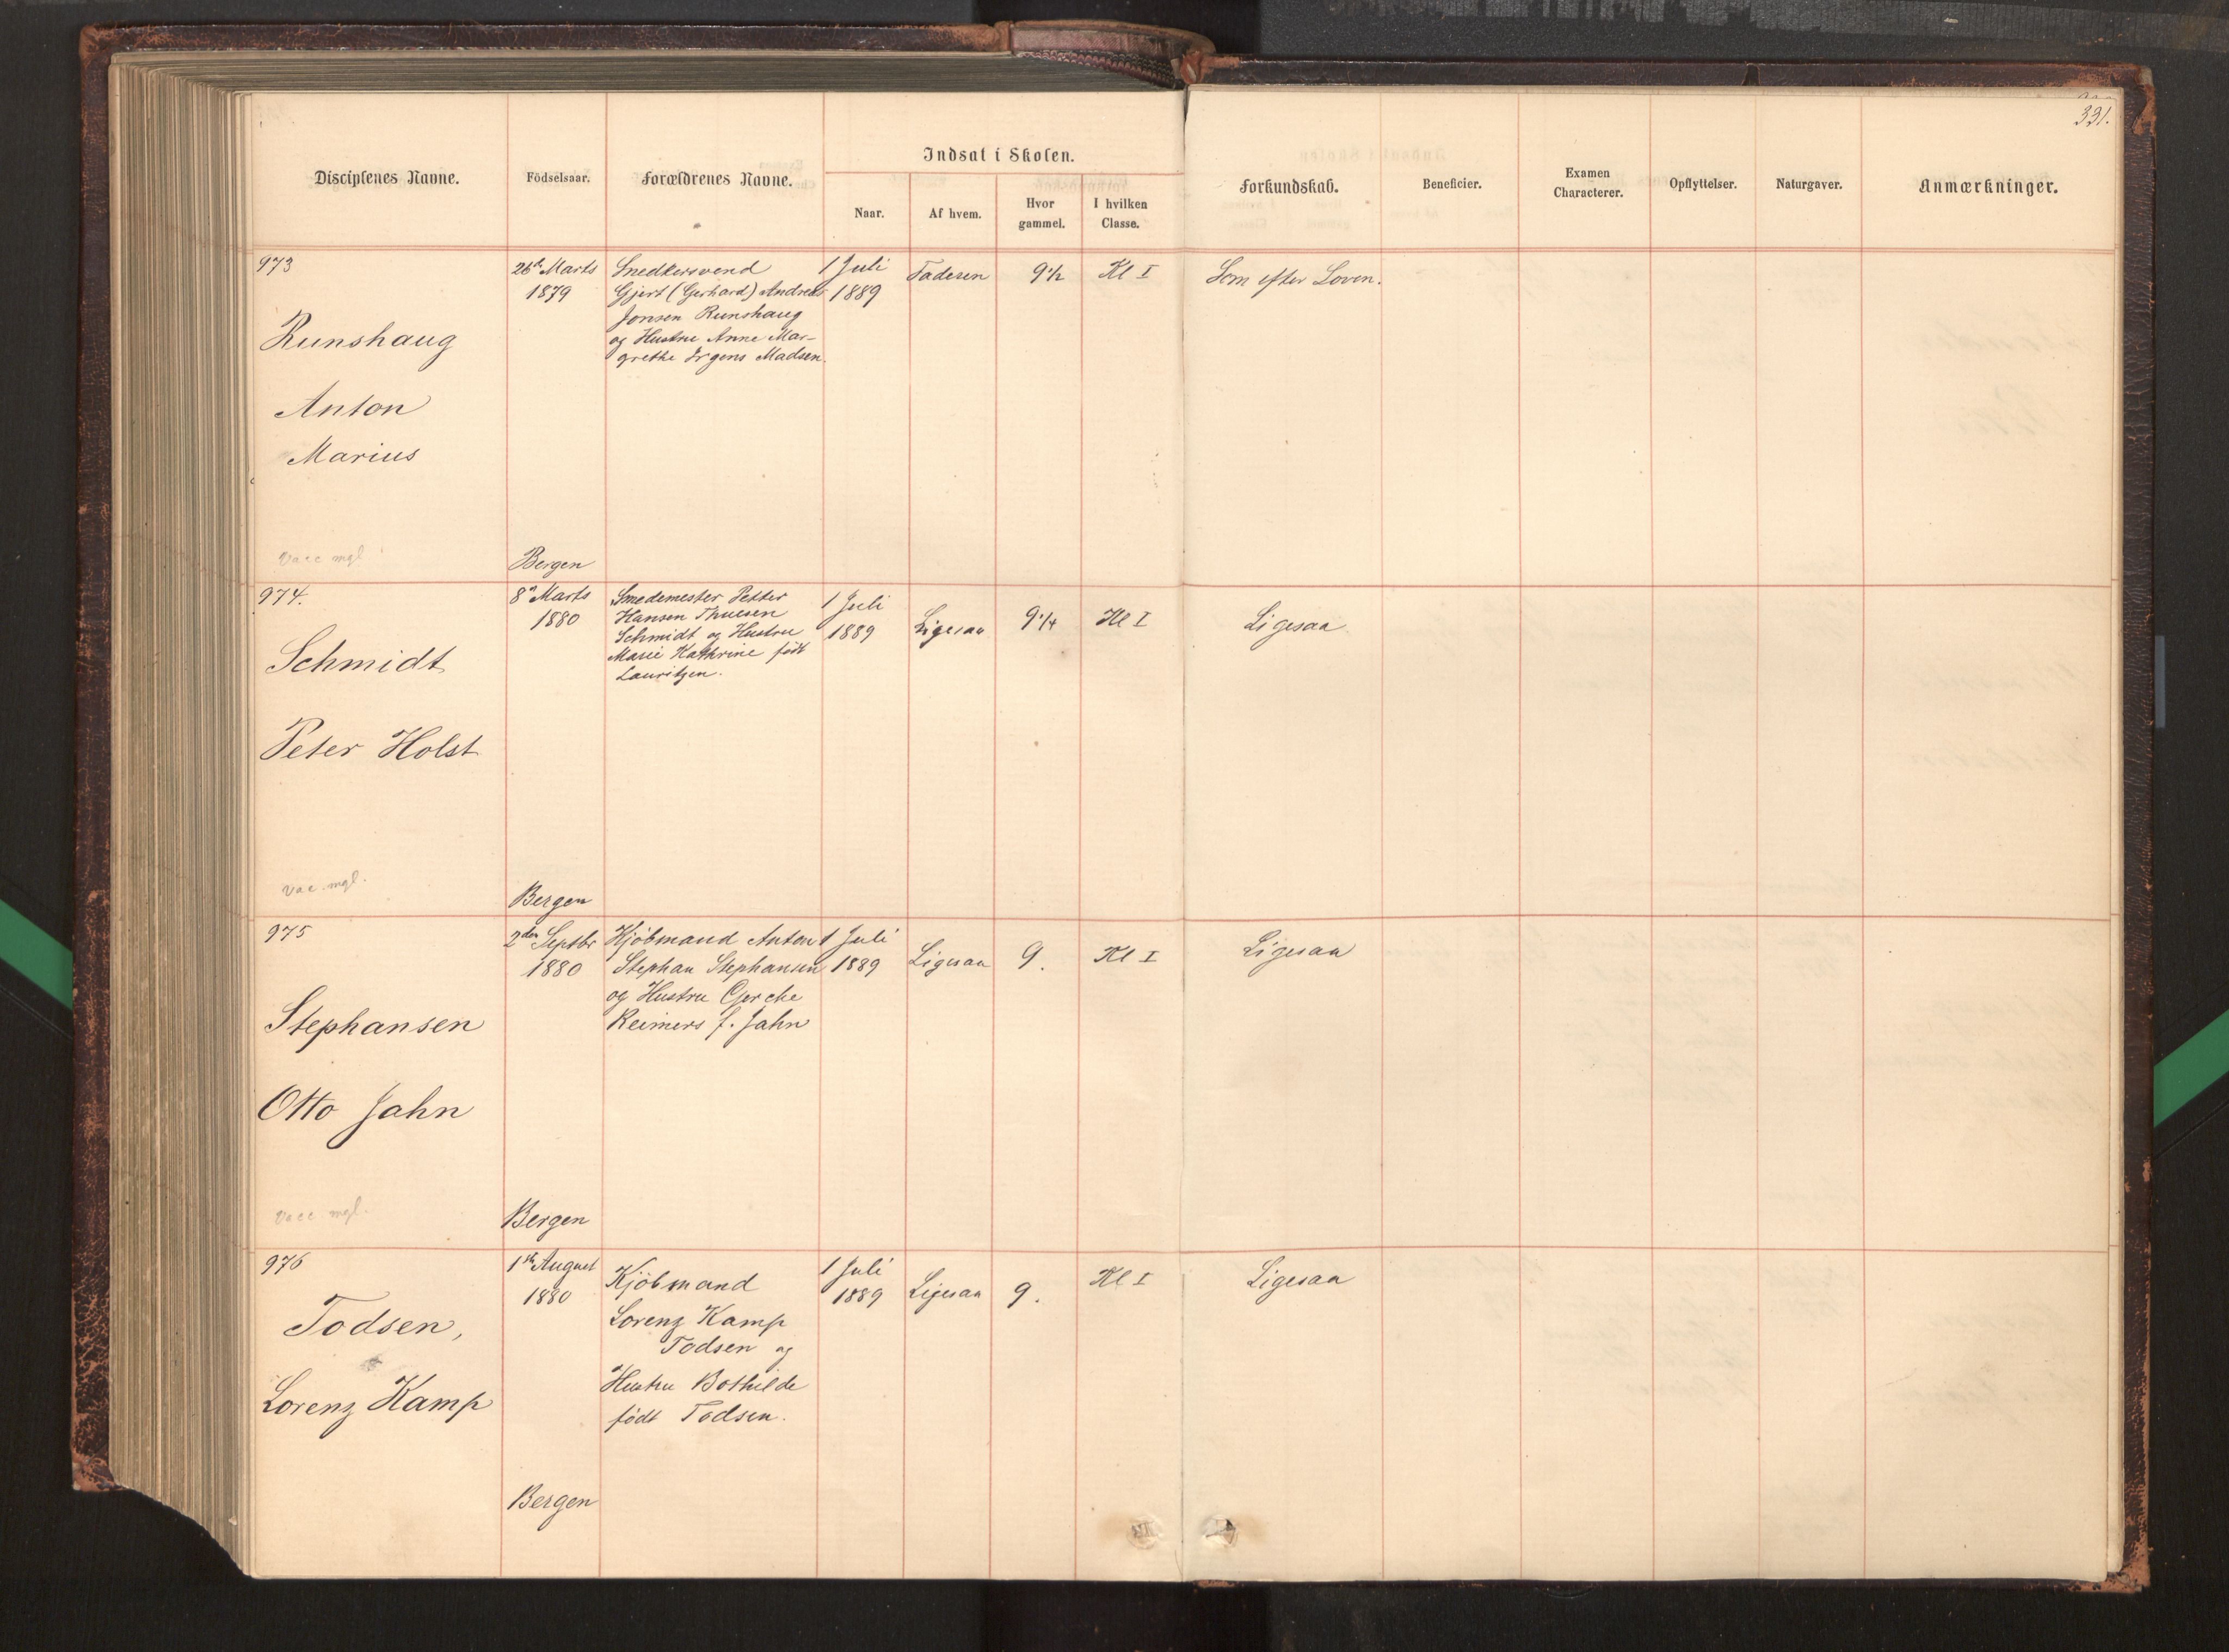 331.
Disciplenes Navne.
Födselsaar.
Forældrenes Navne.
Indsat i Skolen.
Naar.
Af hvem.
Hvor
gammel.
I hvilken
Classe.
Forkundskab.
Beneficier.
Examen
Characterer.
Opflyttelser.
Naturgaver.
Anmærkninger.
973
Runshaug
Anton
Marius
Vacc mgl
26de Marts
1879
Bergen
Snedkersvend
Gjert (Gerhard) Andreas
Jonsen Runshaug
og Hustru Anne Mar-
grethe Irgens Madsen.
1 Juli
1889
Faderen
9½
Kl I
Som efter Loven.
974.
Schmidt
Peter Holst
Vac. mgl.
8de Marts
1880
Bergen
Smedemester Petter
Hansen Thuesen
Schmidt og Hustru
Marie Kathrine födt
Lauritzen.
1 Juli
1889
Ligesaa
9¼
Kl I
Ligesaa
975
Stephansen
Otto Jahn
Vacc. mgl.
2den Septbr
1880
Bergen
Kjöbmand Anton
Stephan Stephansen
og Hustru Gjerche
Reimers f. Jahn
1 Juli
1889
Ligesaa
9.
Kl I
Ligesaa
976
Todsen,
Lorenz Kamp
1ste August
1880
Bergen
Kjöbmand
Lorenz Kamp
Todsen og
Hustru Bothilde
födt Todsen.
1 Juli
1889
Ligesaa
9.
Kl I
Ligesaa